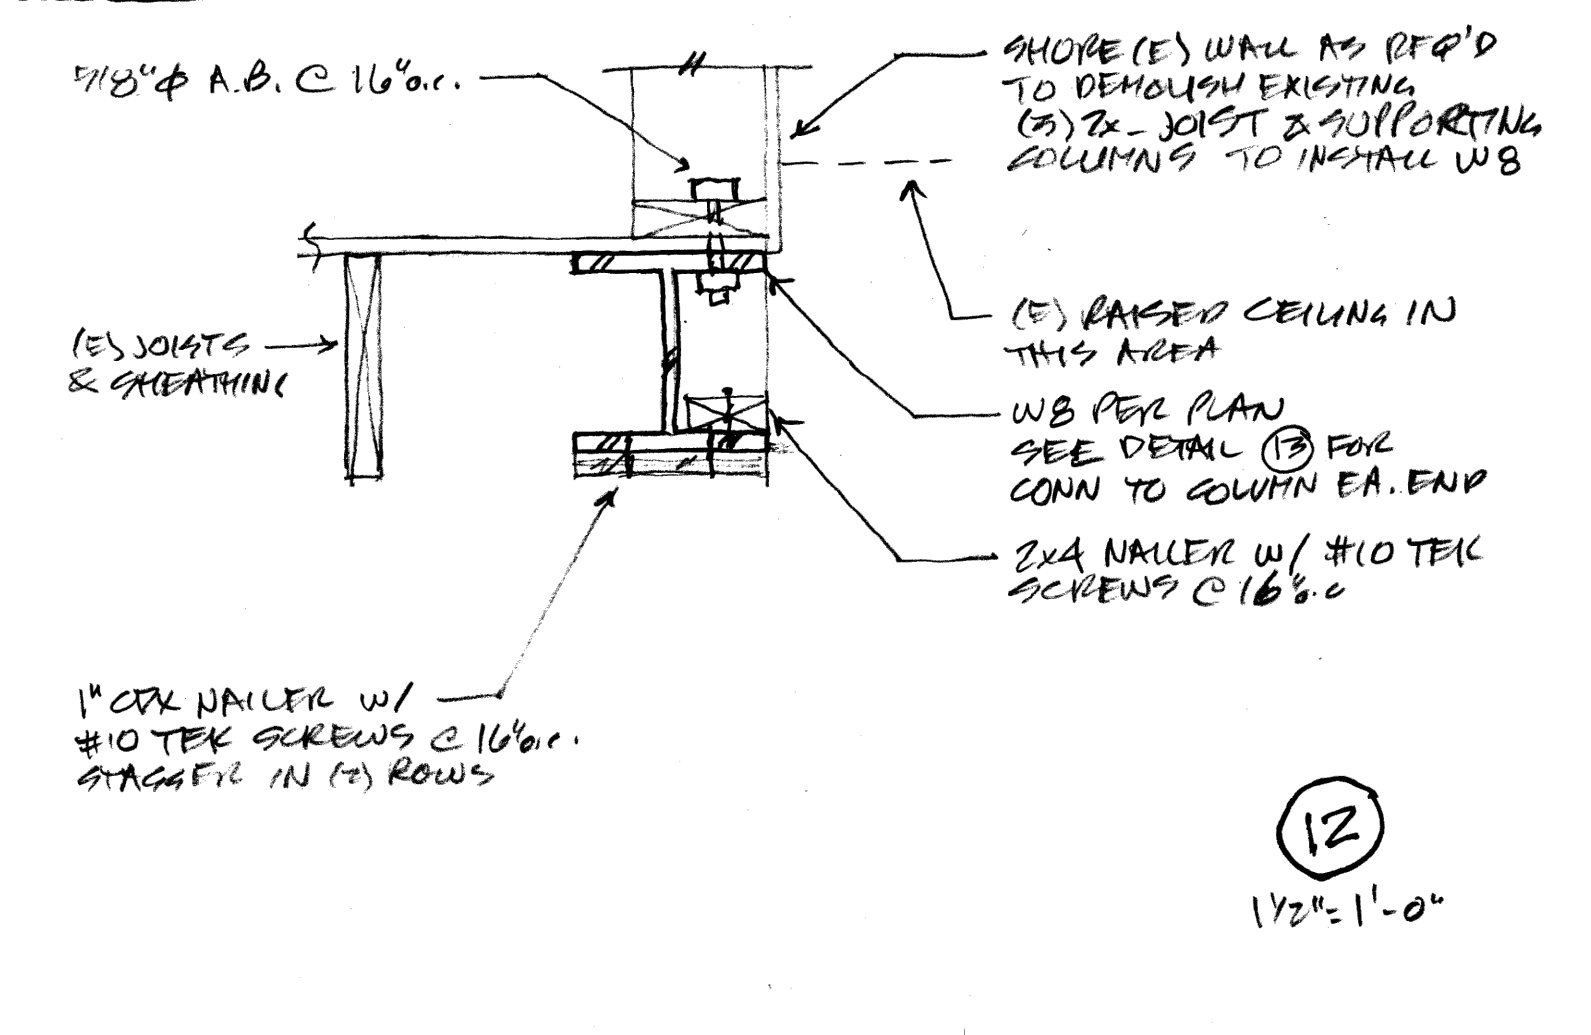 5/8"φ A.B. @ 16"o.c.
SHORE (E) WALL AS REQ'D
TO DEMOLISH EXISTING
(3) 2x_ JOIST & SUPPORTING
COLUMNS TO INSTALL W8
(E) JOISTS
& SHEATHING
(E) RAISED CEILING IN
THIS AREA
W8 PER PLAN
SEE DETAIL 13 FOR
CONN TO COLUMN EA. END
2x4 NAILER W/ #10 TEK
SCREWS @ 16"o.c
1" CDX NAILER W/
#10 TEK SCREWS @ 16"o.c.
STAGGER IN (2) ROWS
12
1 1/2"=1'-0"